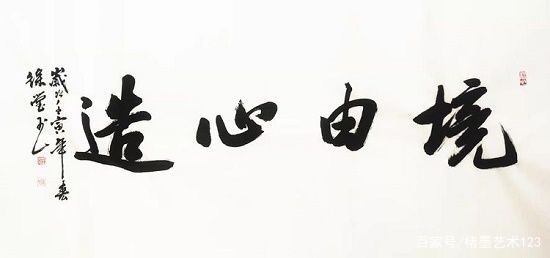 境由心造
歲次壬寅年春
徐莹书
百家号/楮墨艺术123